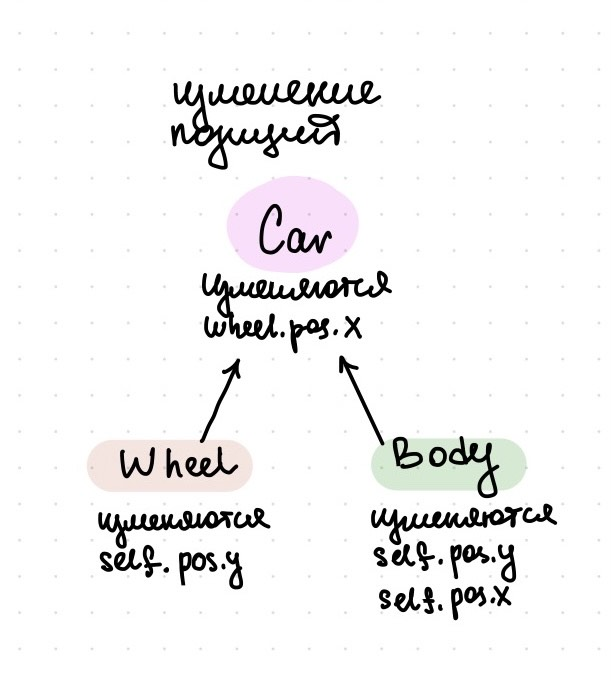 изменение
позиций
Car
изменяются
wheel.pos.x
Wheel
изменяются
self.pos.y
Body
изменяются
self.pos.y
self.pos.x